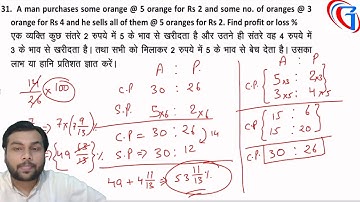 31. A man purchases some orange @ 5 orange for Rs 2 and some no. of oranges @ 3
orange for Rs 4 and he sells all of them @ 5 oranges for Rs 2. Find profit or loss %
एक व्यक्ति कुछ संतरे 2 रूपये में 5 के भाव से खरीदता है और उतने ही संतरे वह 4 रुपये में
3 के भाव से खरीदता है। तथा सभी को मिलाकर 2 रुपये में 5 के भाव से बेच देता है। उसका
लाभ या हानि प्रतिशत ज्ञात करें।
14/26 × 100
A : P
C.P 30 : 26
S.P. 5×6 : 2×6
C.P = 30 : 26
S.P ⇒ 30 : 12
14
49 + 4 11/13 ⇒ 53 11/13 %
A : P
C.P. { 5×3 : 2×3
3×5 : 4×5
C.P { 15 : 6
15 : 20
C.P. 30 : 26